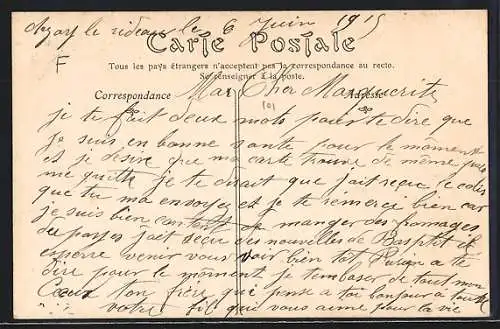 Azay le rideau le 6 Juin 1915
Carte Postale
Tous les pays étrangers n'acceptent pas la correspondance au recto.
Se renseigner à la poste.
F
Correspondance Adresse
Ma Cher Marguerite
101
je te fait deux mots pour te dire que
je suis en bonne sante pour le moment
et je desire que ma carte trouve de même
je te direst que jait reçu le colis
que tu ma envoyez et je te remerce bien car
je suis bien contant de manger des fromages
du payes jait reçu des nouvelles de Baptist il
esperre venir vous voir bien tot a te
dire pour le moment je tembaser de tout mon
Cœur ton frère qui pense a toi bonjour a toute
votre qui vous aime pour la vie